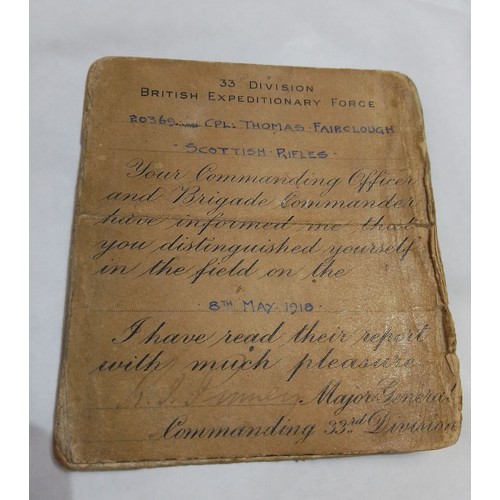 33 DIVISION
BRITISH EXPEDITIONARY FORCE
20369 CPL. THOMAS FAIRCLOUGH
SCOTTISH RIFLES
Your Commanding Officer
and Brigade Commander
have informed me that
you distinguished yourself
in the field on the
8TH MAY 1918
I have read their report
with much pleasure
Major General
Commanding 33rd Division